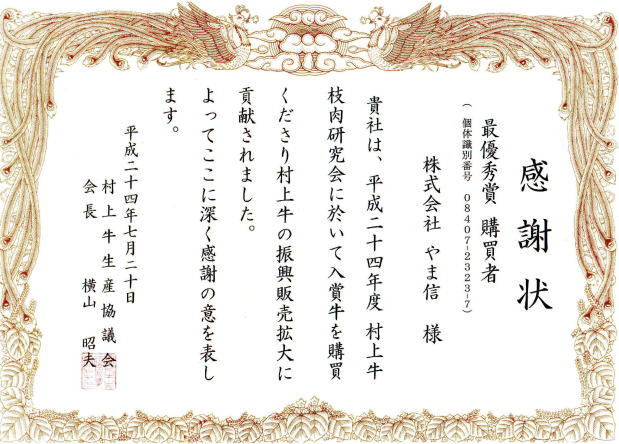 感謝状
最優秀賞 購買者
(個体識別番号 08407-2323-7)
株式会社 やま信 様
貴社は、平成二十四年度 村上牛
枝肉研究会に於いて入賞牛を購買
くださり村上牛の振興販売拡大に
貢献されました。
よってここに深く感謝の意を表し
ます。
平成二十四年七月二十日
村上牛生産協議会
会長 横山 昭夫